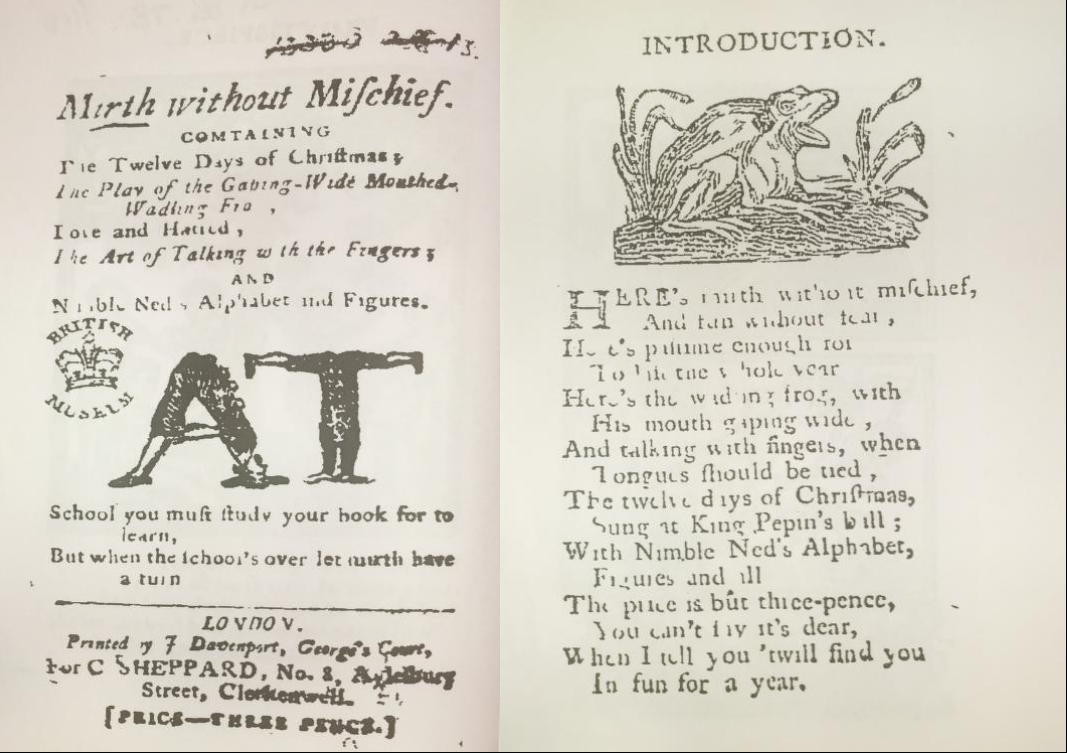 Mirth without Miſchief.
COMTAINING
The Twelve Days of Chriſtmas;
The Play of the Gaping-Wide Mouthed-
Wadling Fro ,
Love and Hatred,
The Art of Talking with the Fingers;
AND
Nimble Ned's Alphabet and Figures.
BRITISH
MUSEUM
AT
School you muſt ſtudy your book for to
learn,
But when the ſchool's over let mirth have
a turn
LONDON.
Printed by J Davenport, George's Court,
For C SHEPPARD, No. 8, Aylesbury
Street, Clerkenwell.
[PRICE—THREE PENCE.]
INTRODUCTION.
HERE's mirth without miſchief,
And fun without fear,
Here's paſtime enough for
To laſt the whole year
Here's the wading frog, with
His mouth gaping wide,
And talking with fingers, when
Tongues ſhould be tied,
The twelve days of Chriſtmas,
Sung at King Pepin's ball;
With Nimble Ned's Alphabet,
Figures and all
The price is but three-pence,
You can't ſay it's dear,
When I tell you 'twill find you
In fun for a year.